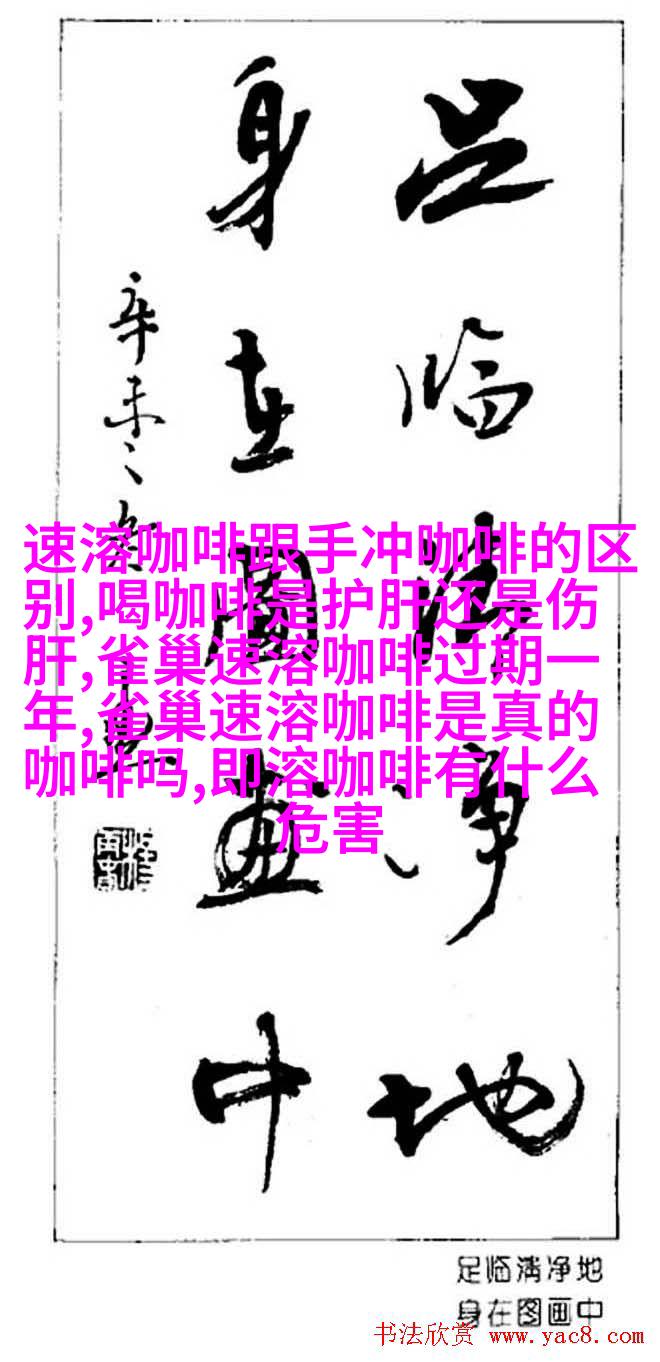 足临清净地
身在图画中
辛未之
速溶咖啡跟手冲咖啡的区
别,喝咖啡是护肝还是伤
肝,雀巢速溶咖啡过期一
年,雀巢速溶咖啡是真的
咖啡吗,即溶咖啡有什么
危害
足临清净地
身在图画中
书法欣赏 www.yac8.com